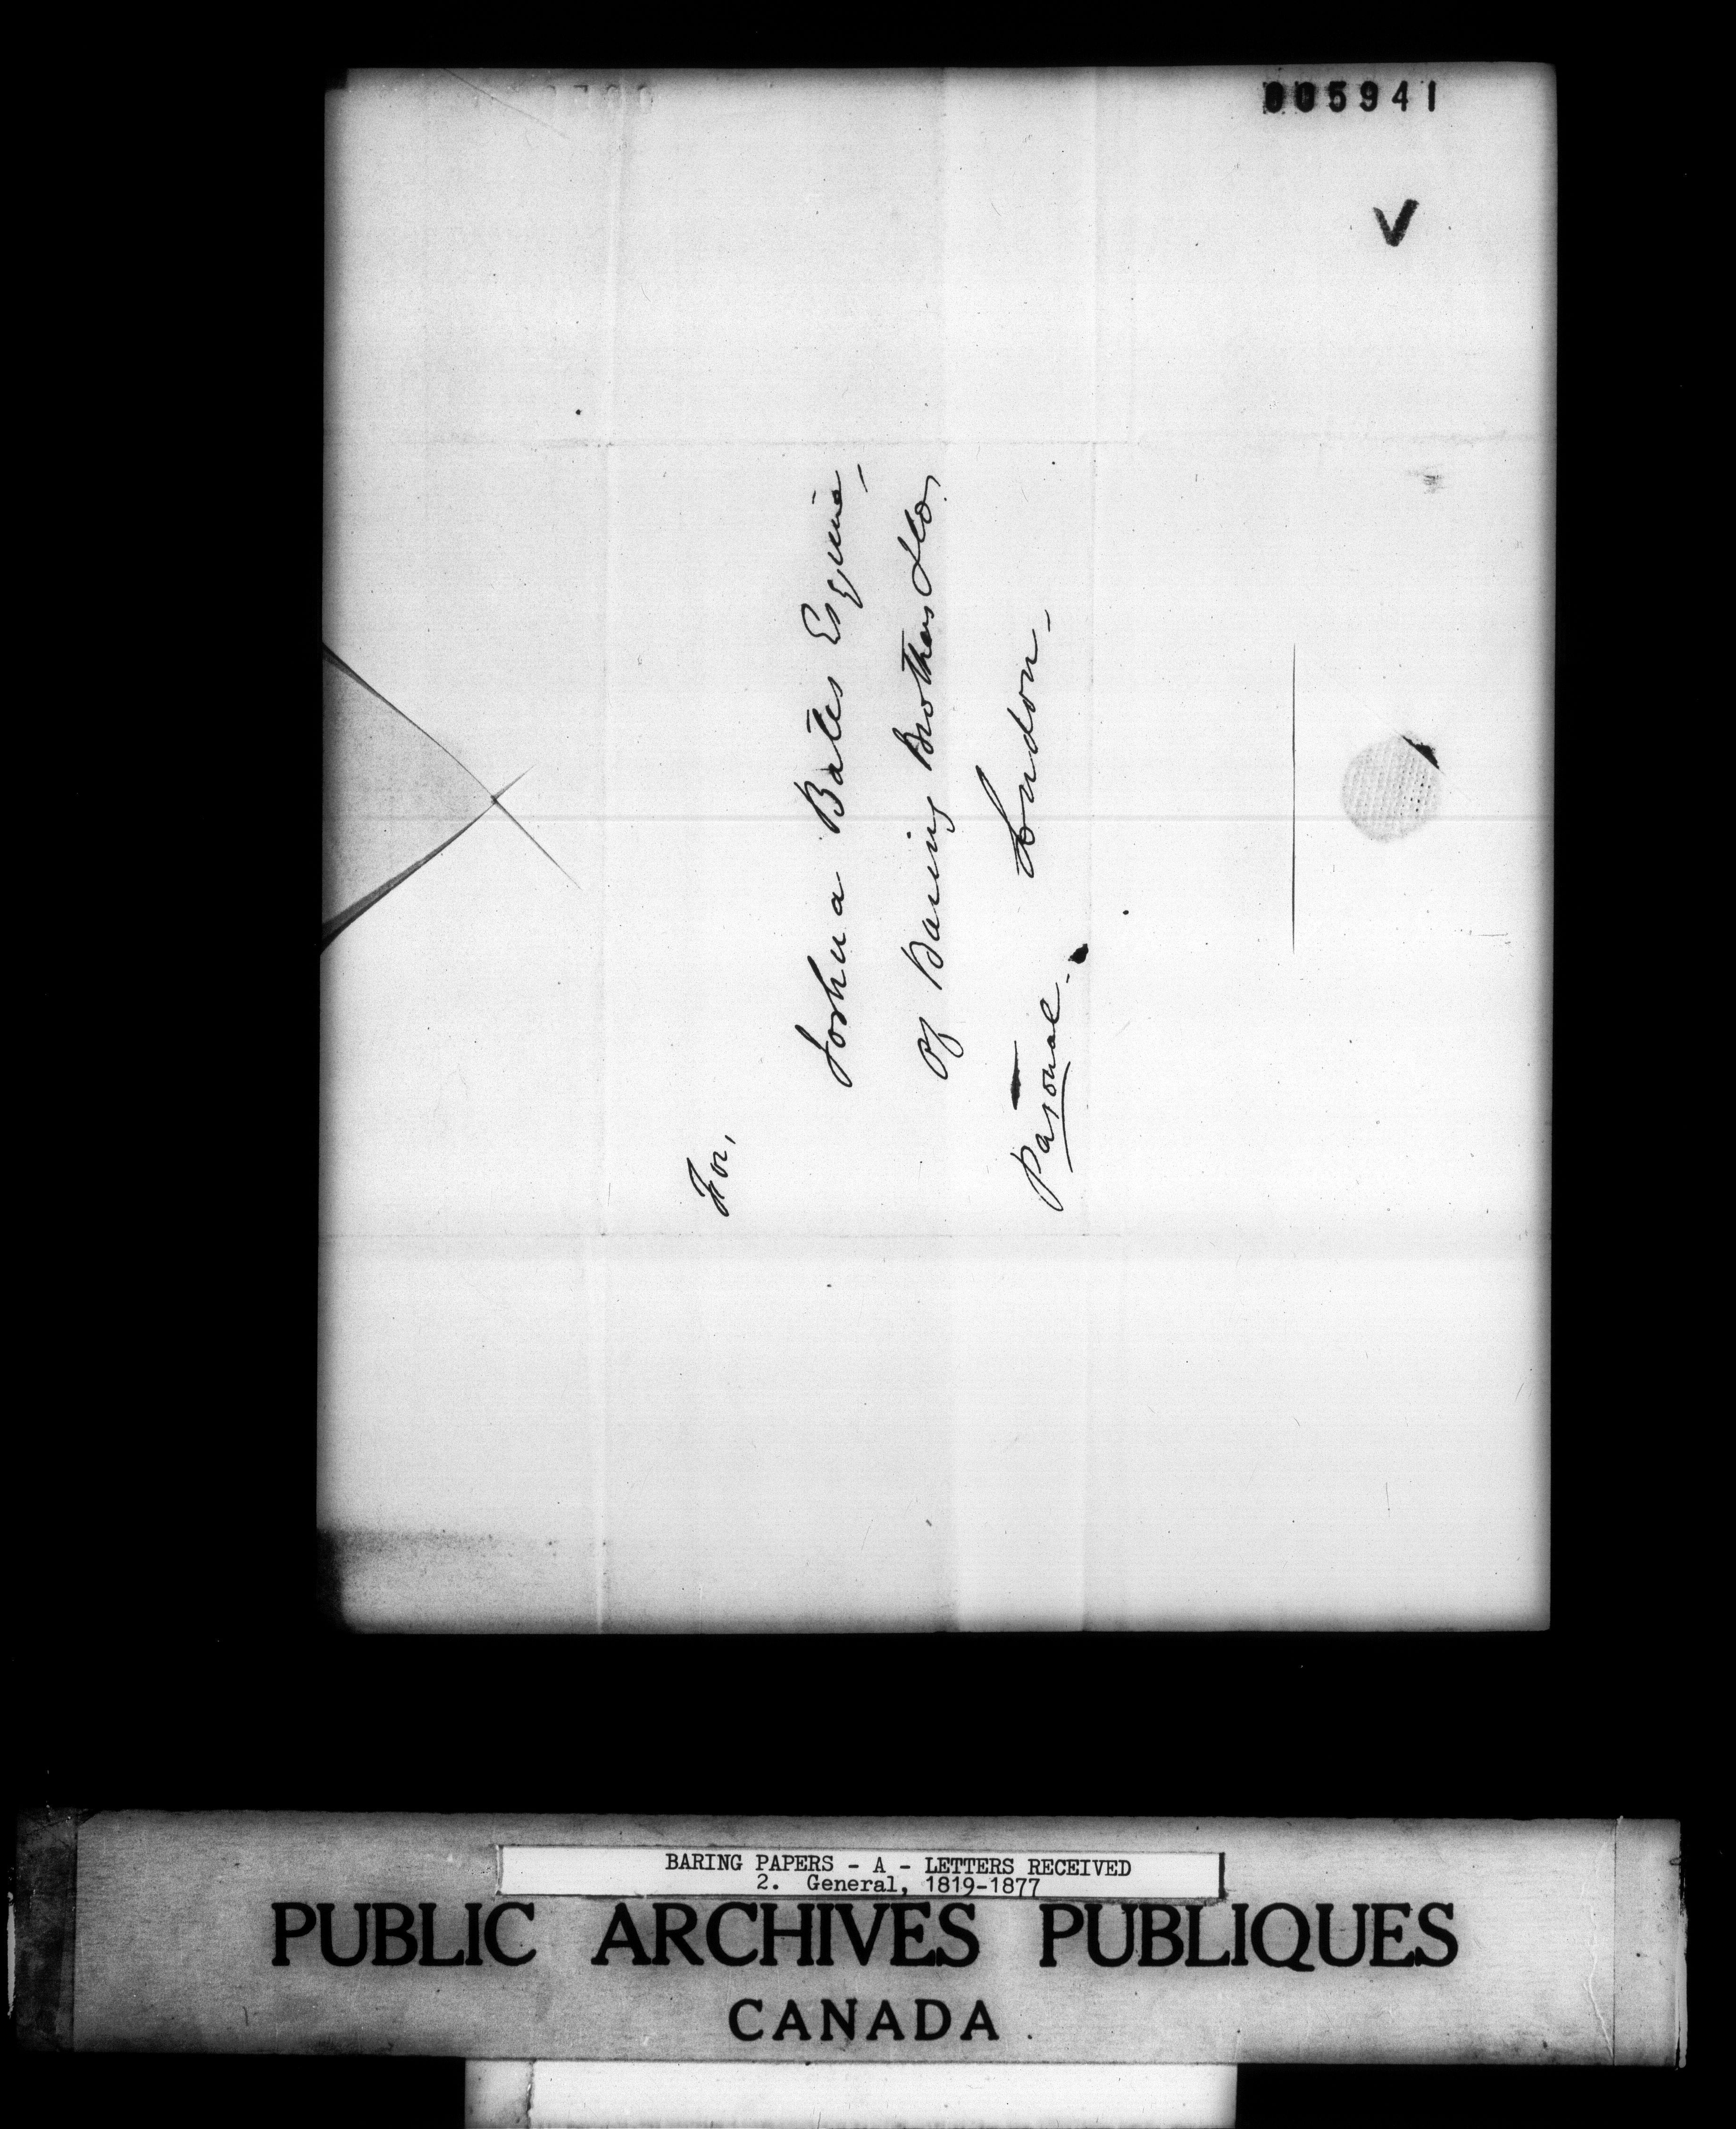 005941
V
For,
Joshua Bates Esquire,
of Baring Brothers & Co,
London.
Personal.
BARING PAPERS - A - LETTERS RECEIVED
2. General, 1819-1877
PUBLIC ARCHIVES PUBLIQUES
CANADA